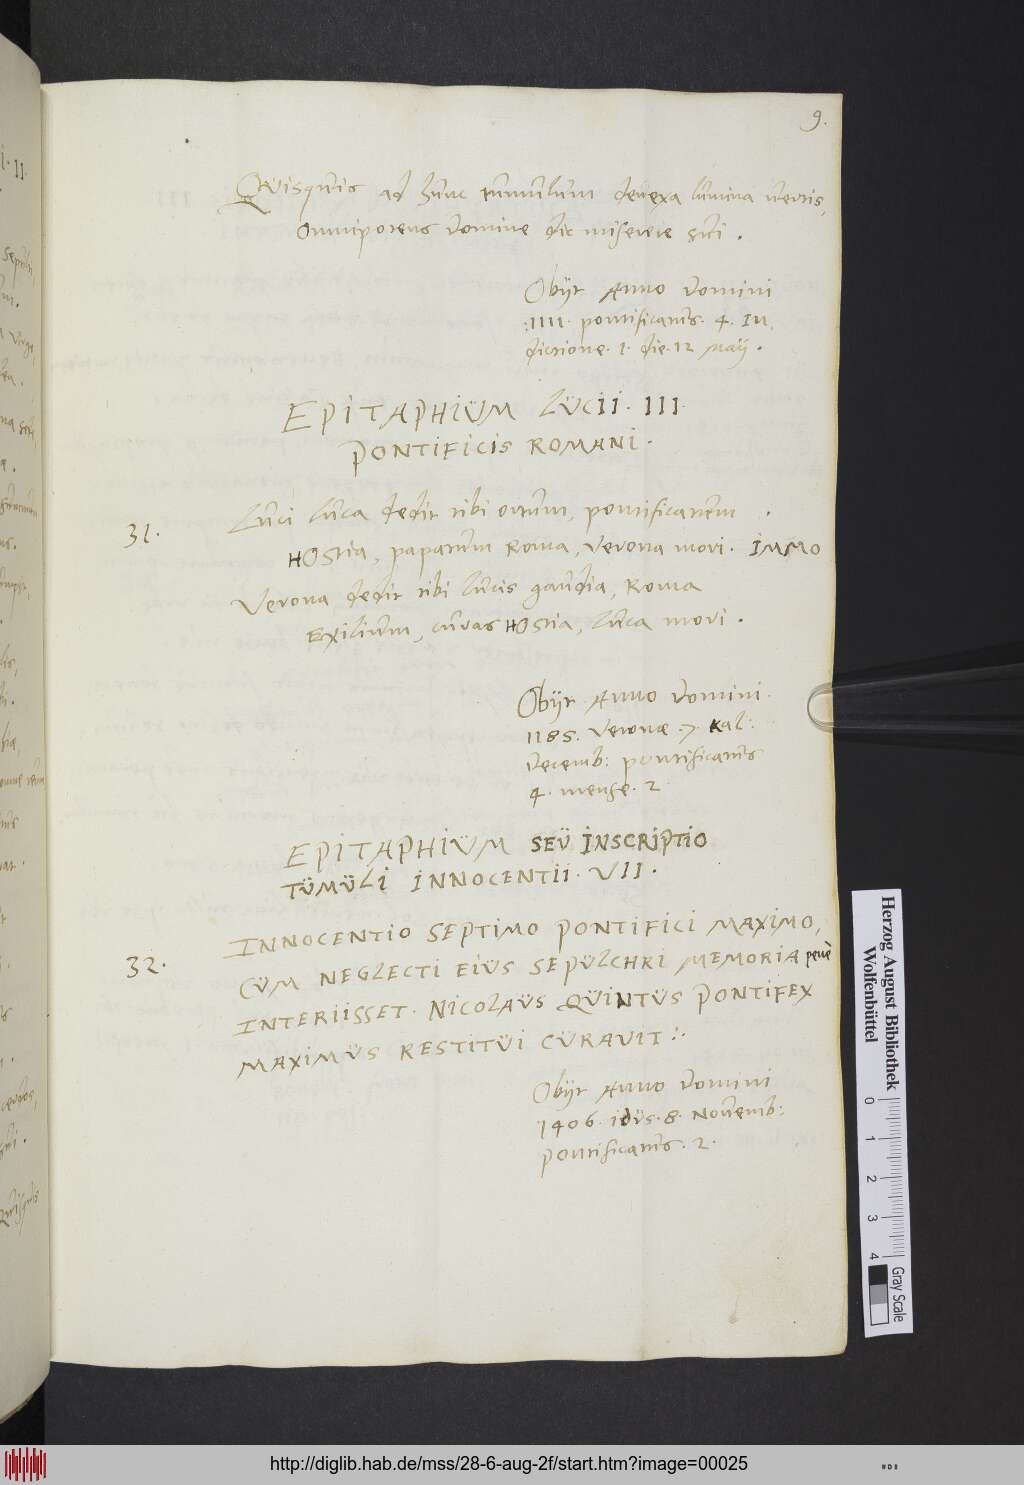 9.
Quisquis ad hunc tumulum devexa lumina vertis,
Omnipotens domine dic miserere sui.
Obijt Anno domini
:IIII. pontificatus. 4. In,
dictione. 1. die. 12 Maij.
EPITAPHIÜM LÜCII. III.
PONTIFICIS ROMANI.
31.
Luci Luca dedit tibi ortum, pontificatum
HOstia, papatum Roma, Verona mori. IMMO
Verona dedit tibi lucis gaudia, Roma
Exilium, curas HOstia, Luca mori.
Obijt Anno domini
1185. Veronæ. 7. Kal:
Decemb: pontificatus
4. mense. 2
EPITAPHIÜM SEÜ INSCRIPTIO
TÜMÜLI INNOCENTII. VII.
32.
INNOCENTIO SEPTIMO PONTIFICI MAXIMO,
CÜM NEGLECTI EIÜS SEPÜLCHRI MEMORIA penè
INTERIISSET. NICOLAÜS QÜINTÜS PONTIFEX
MAXIMÜS RESTITÜI CÜRAVIT:.
Obijt Anno Domini
1406. idüs. 8. Novemb:
pontificatus. 2.
Herzog August Bibliothek
Wolfenbüttel
0 1 2 3 4
Gray Scale
http://diglib.hab.de/mss/28-6-aug-2f/start.htm?image=00025